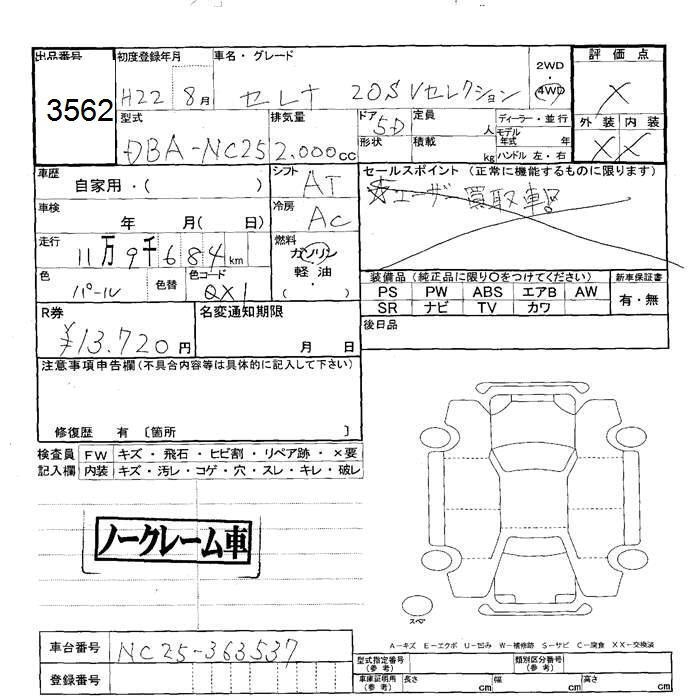 出品番号 初度登録年月 車名・グレード 2WD・4WD 評価点
3562 H22 8月 セレナ 20S Vセレクション X
型式 排気量 ドア 5D 定員 人 ディーラー・並行 外装 内装
DBA-NC25 2.000cc 形状 積載 kg モデル年式 年 ハンドル 左・右 X X
車歴 シフト AT セールスポイント (正常に機能するものに限ります)
自家用・( ) ☆ユーザー買取車!!
車検 年 月( 日) 冷房 AC
走行 11万9千684km 燃料 ガソリン 軽油 ( ・ )
色 パール 色替 色コード QX1
装備品 (純正品に限り〇をつけてください) 新車保証書
PS PW ABS エアB AW 有・無
SR ナビ TV カワ
R券 ¥13.720円 名変通知期限 月 日
後日品
注意事項申告欄(不具合内容等は具体的に記入して下さい)
修復歴 有 〔箇所 〕
検査員 FW キズ・飛石・ヒビ割・リペア跡・×要
記入欄 内装 キズ・汚レ・コゲ・穴・スレ・キレ・破レ
ノークレーム車
スペア
A-キズ E-エクボ U-凹み W-補修跡 S-サビ C-腐食 XX-交換済
車台番号 NC25-363537
登録番号
型式指定番号(参考) 類別区分番号(参考)
車庫証明用(参考) 長さ cm 幅 cm 高さ cm